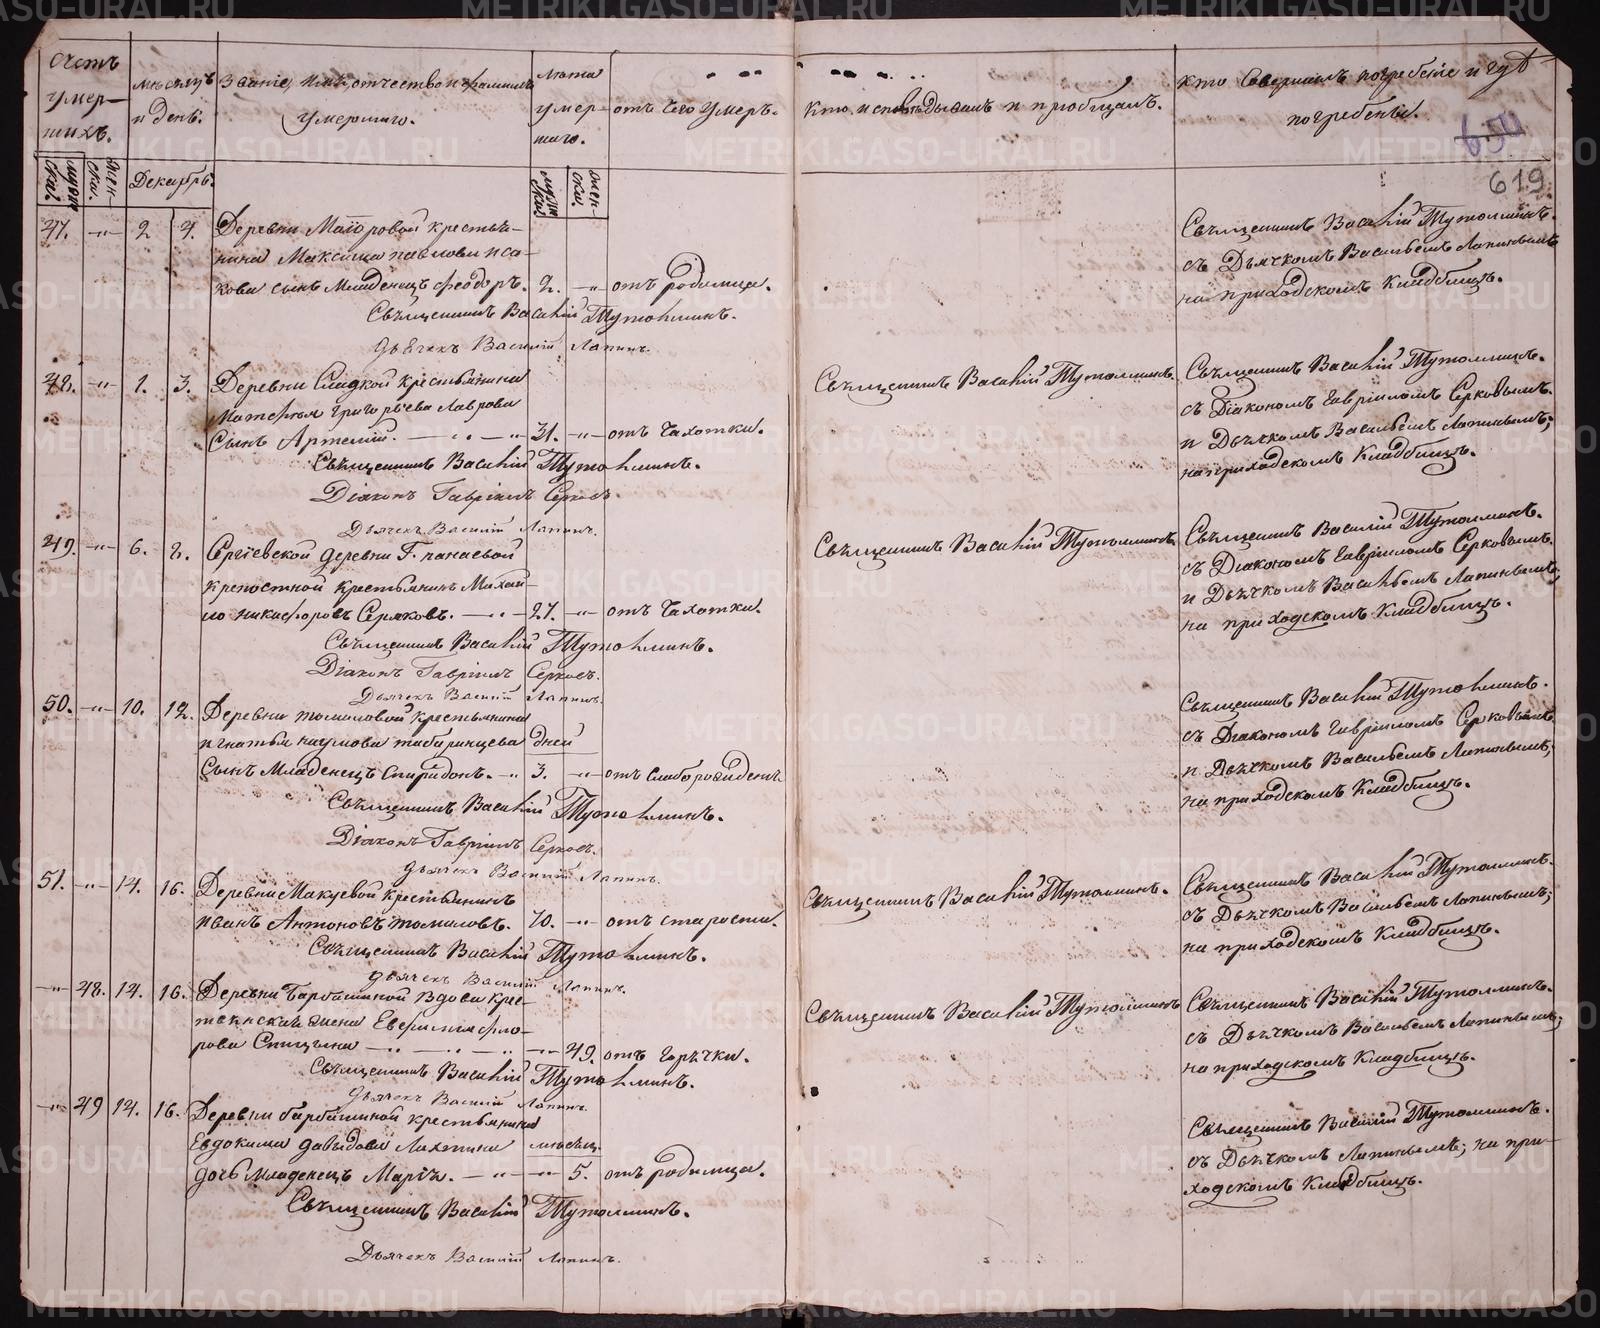 Счетъ умер-шихъ.
мѣсяцъ и день.
Званіе, имя, отчество и фамилія умершаго.
Лѣта умер-шаго.
отъ чего умеръ.
кто исповѣдывалъ и пріобщалъ.
кто совершалъ погребеніе и гдѣ погребены.
654
619
мужес-ски.
жен-ски.
Декабрь.
мужес-ски.
жен-ски.
47. -"- 2 4. Деревни Маіоровой крестья-
нина Максима Павлова Иса-
кова сынъ Младенецъ Феодоръ. 2. -"- отъ родимца.
Священникъ Василій Тутолминъ.
Дьячекъ Василій Лапинъ.
Священникъ Василій Тутолминъ.
съ Дьячкомъ Васильемъ Лапинымъ
на приходскомъ Кладбищѣ.
48. -"- 1. 3. Деревни Сладкой крестьянина
Григорьева Лаврова
Сынъ Артемій. 31. -"- отъ Чахотки.
Священникъ Василій Тутолминъ.
Діаконъ Гавріилъ Серковъ.
Дьячекъ Василій Лапинъ.
Священникъ Василій Тутолминъ.
Священникъ Василій Тутолминъ.
съ Діакономъ Гавріиломъ Серковымъ.
и Дьячкомъ Васильемъ Лапинымъ;
на приходскомъ Кладбищѣ.
49. -"- 6. 8. Сергіевской деревни Г. Панаевой
крепостной крестьянинъ Михай-
ло Никифоровъ Серяковъ. 27. -"- отъ Чахотки.
Священникъ Василій Тутолминъ.
Діаконъ Гавріилъ Серковъ.
Дьячекъ Василій Лапинъ.
Священникъ Василій Тутолминъ
Священникъ Василій Тутолминъ.
съ Діакономъ Гавріиломъ Серковымъ.
и Дьячкомъ Васильемъ Лапинымъ;
на приходскомъ Кладбищѣ.
50. -"- 10. 12. Деревни Томиловой крестьянина
Игнатья Наумова Табаринцева дней
Сынъ Младенецъ Спиридонъ. -"- 3. -"- отъ слаборожден
Священникъ Василій Тутолминъ.
Діаконъ Гавріилъ Серковъ.
Дьячекъ Василій Лапинъ.
Священникъ Василій Тутолминъ.
съ Діакономъ Гавріиломъ Серковымъ
и Дьячкомъ Васильемъ Лапинымъ;
на приходскомъ Кладбищѣ.
51. -"- 14. 16. Деревни Макуевой крестьянинъ
Иванъ Антоновъ Томиловъ. 70. -"- отъ старости.
Священникъ Василій Тутолминъ.
Дьячекъ Василій Лапинъ.
Священникъ Василій Тутолминъ.
Священникъ Василій Тутолминъ.
съ Дьячкомъ Васильемъ Лапинымъ;
на приходскомъ Кладбищѣ.
-"- 48. 14. 16. Деревни Барбашиной вдова кре-
стьянская жена Евфимья Фло-
рова Спицына -"- 49. отъ Горячки.
Священникъ Василій Тутолминъ.
Дьячекъ Василій Лапинъ.
Священникъ Василій Тутолминъ
Священникъ Василій Тутолминъ.
съ Дьячкомъ Васильемъ Лапинымъ;
на приходскомъ Кладбищѣ.
-"- 49 14. 16. Деревни Барбашиной крестьянина
Евдокима Давыдова Лахтина мѣсяц.
дочь Младенецъ Марія. -"- 5. отъ родимца.
Священникъ Василій Тутолминъ.
Дьячекъ Василій Лапинъ.
Священникъ Василій Тутолминъ.
съ Дьячкомъ Лапинымъ; на при-
ходскомъ Кладбищѣ.
METRIKI.GASO-URAL.RU